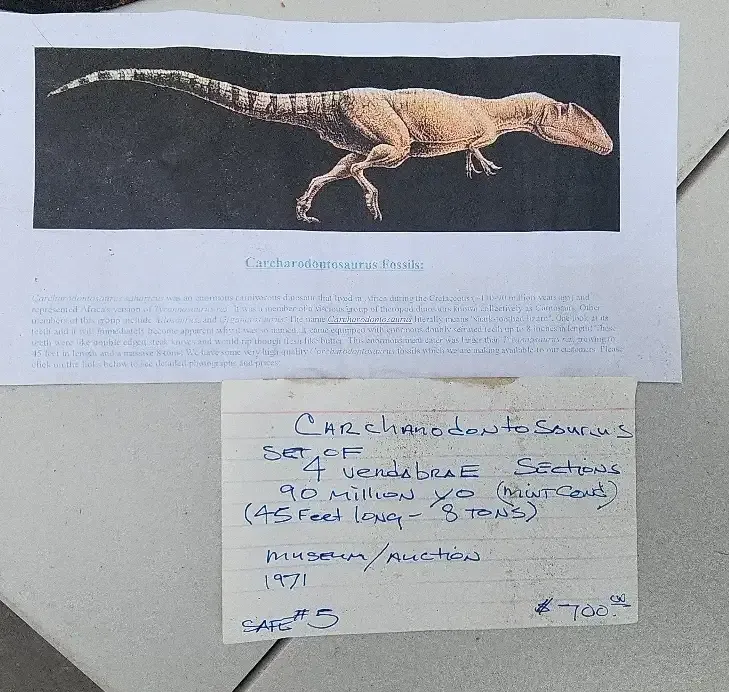 Carcharodontosaurus Fossils:
Carcharodontosaurus saharicus was an enormous carnivorous dinosaur that lived in Africa during the Cretaceous million years ago) and
represented Africa's version of Tyrannosaurus rex. It was a member of a vicious group of theropod dinosaurs known collectively as Carnosaurs. Other
members of this group include Allosaurus and Giganotosaurus. The name Carcharodontosaurus literally means "shark-toothed lizard". One look at its
teeth and it will immediately become apparent why it was so named. equipped with enormous doubly serrated teeth up to 8 inches in length! These
teeth were like double edged, steak knives and would rip through flesh like butter. This enormous meat eater was larger than Tyrannosaurus rex, growing to
45 feet in length and a massive 8 tons! We have some very high quality Carcharodontosaurus fossils which we are making available to our customers. Please
click on the links below to see detailed photographs and prices:
CARchanodontosaurus
SET OF
4 VendabrAE SECtions
90 Million YO (Mint Cond)
(45 Feet long - 8 TONS)
MUSEUM/AUCTION
1971
SAFE #5 $700.00